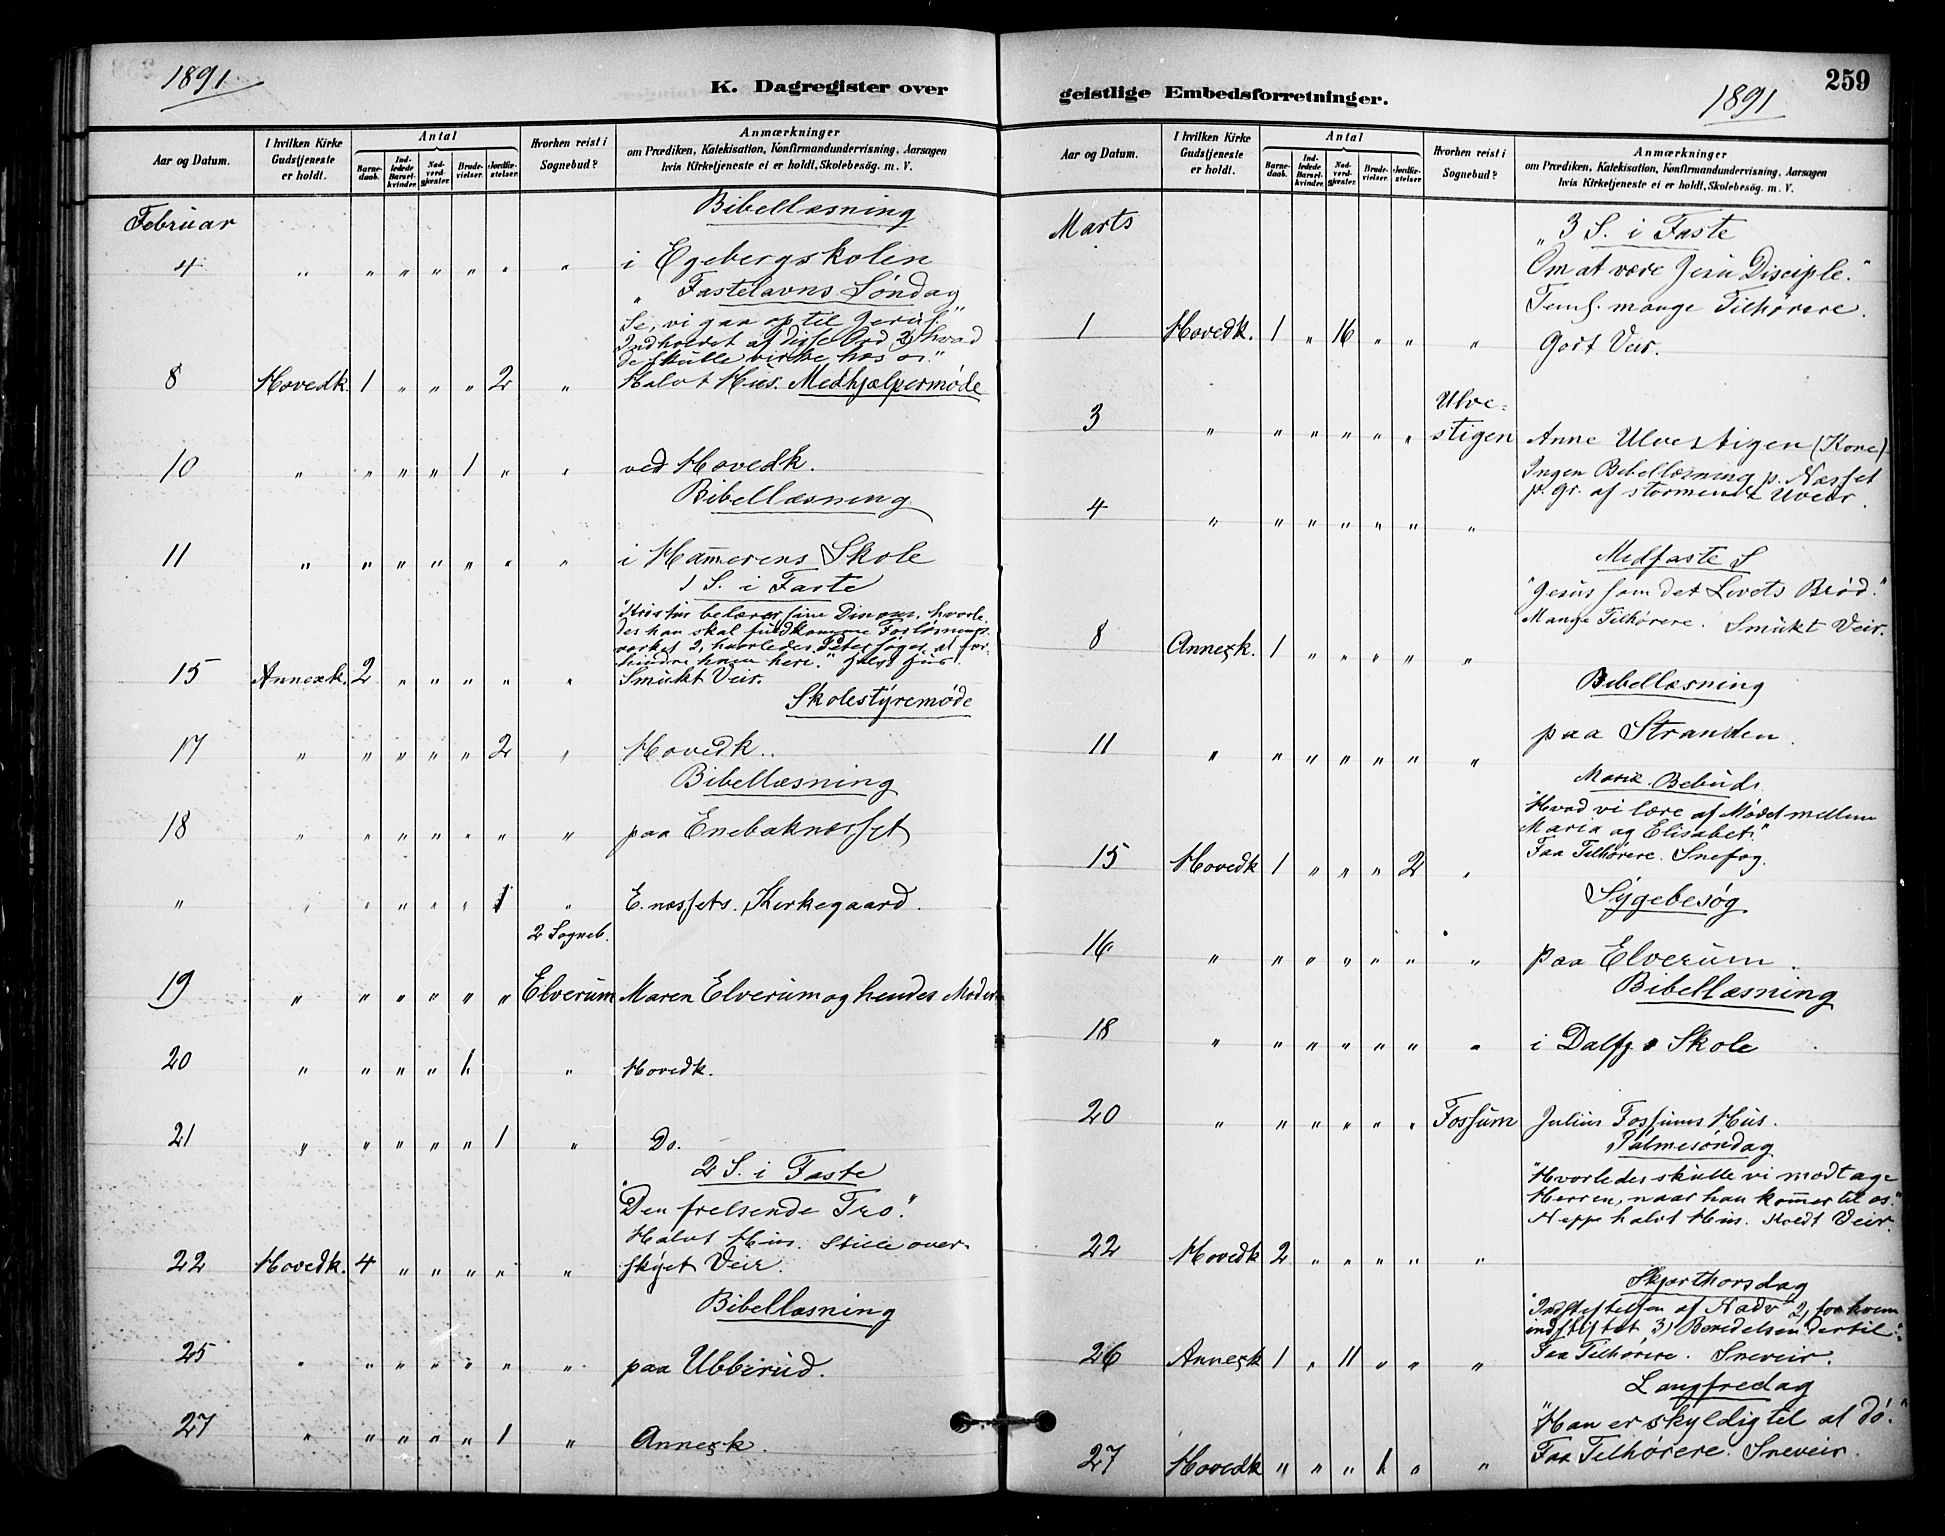 1891
K. Dagregister over
Aar og Datum.
I hvilken Kirke Gudstjeneste er holdt.
Antal
Barnedaab.
Indledede Barselkvinder.
Nadverdgjæster.
Brudevielser.
Jordfæstelser.
Hvorhen reist i Sognebud?
Anmærkninger
om Prædiken, Katekisation, Konfirmandundervisning, Aarsagen
hvis Kirketjeneste ei er holdt, Skolebesøg. m. V.
Februar
Bibellæsning
4 " " " " " " " i Egebergskolen
" Fastelavns Søndag
Se, vi gaa op til Jerus."
Indholdet af disse Ord, 2) hvad
de skulle virke hos os."
8 Hovedk. 1 " " " 2 " Halvt Hus. Medhjælpermøde
10 " " " " 1 " " ved Hovedk.
Bibellæsning
11 " " " " " " " i Hammerens Skole
1 S. i Faste
"Kristus belærer sine hvorle
des han skal fuldkomme Forløsnings
værket 2, hvorledes Peter søger at for
hindre ham heri."
15 Annexk. 2 " " " " " Smukt Veir.
Skolestyremøde
17 " " " " " 2 " Hovedk.
Bibellæsning
18 " " " " " " " paa Enebaknæsset
" " " " " " 1 " E. næssets Kirkegaard.
2 Sogneb.
19 " " " " " " Elverum Maren Elverum og hendes Moder
20 " " " " 1 " Hovedk.
21 " " " " " 1 " Do.
2 S. i Faste
"Den frelsende Tro."
Halvt Hus. Stille over
22 Hovedk. 4 " " " " " skyet Veir.
Bibellæsning
25 " " " " " " " paa Ubberud.
27 " " " " " 1 " Annexk.
geistlige Embedsforretninger.
1891
259
Aar og Datum.
I hvilken Kirke Gudstjeneste er holdt.
Antal
Barnedaab.
Indledede Barselkvinder.
Nadverdgjæster.
Brudevielser.
Jordfæstelser.
Hvorhen reist i Sognebud?
Anmærkninger
om Prædiken, Katekisation, Konfirmandundervisning, Aarsagen
hvis Kirketjeneste ei er holdt, Skolebesøg. m. V.
Marts
" 3 S. i Faste
Om at være Jesu Disciple."
Teml. mange Tilhørere.
1 Hovedk. 1 " 16 " " " Godt Veir.
Ulve-
3 " " " " " " stigen Anne Ulvestigen (Kone)
Ingen Bibellæsning p. Næsset
4 " " " " " " " p. gr. af stormende Uveir.
Midfaste S
"Jesus som det Livets Brød."
Mange Tilhørere. Smukt Veir.
8 Annexk. 1 " " " " "
Bibellæsning
11 " " " " " " " paa Stranden.
Mariæ Bebuds.
"Hvad vi lære af Mødet mellem
Maria og Elisabet."
15 Hovedk 1 " " " 2 " Faa Tilhørere. Snefog.
Sygebesøg
16 " " " " " " " paa Elverum.
Bibellæsning
18 " " " " " " " i Dalfj. Skole
20 " " " " " " Fossum Julius Fossums Hus.
Palmesøndag
"Hvorledes skulle vi modtage
Herren, naar han kommer til os."
Neppe halvt Hus. Koldt Veir.
22 Hovedk 2 " " " " "
Skjærthorsdag
"Indstiftelsen af Nadv 2, for hvem
indstiftet 3) Beredelsen dertil."
26 Annexk 1 " 11 " " " Faa Tilhørere. Sneveir.
Langfredag
"Han er skyldig til at dø."
27 Hovedk " " " 1 " " Faa Tilhørere. Sneveir.